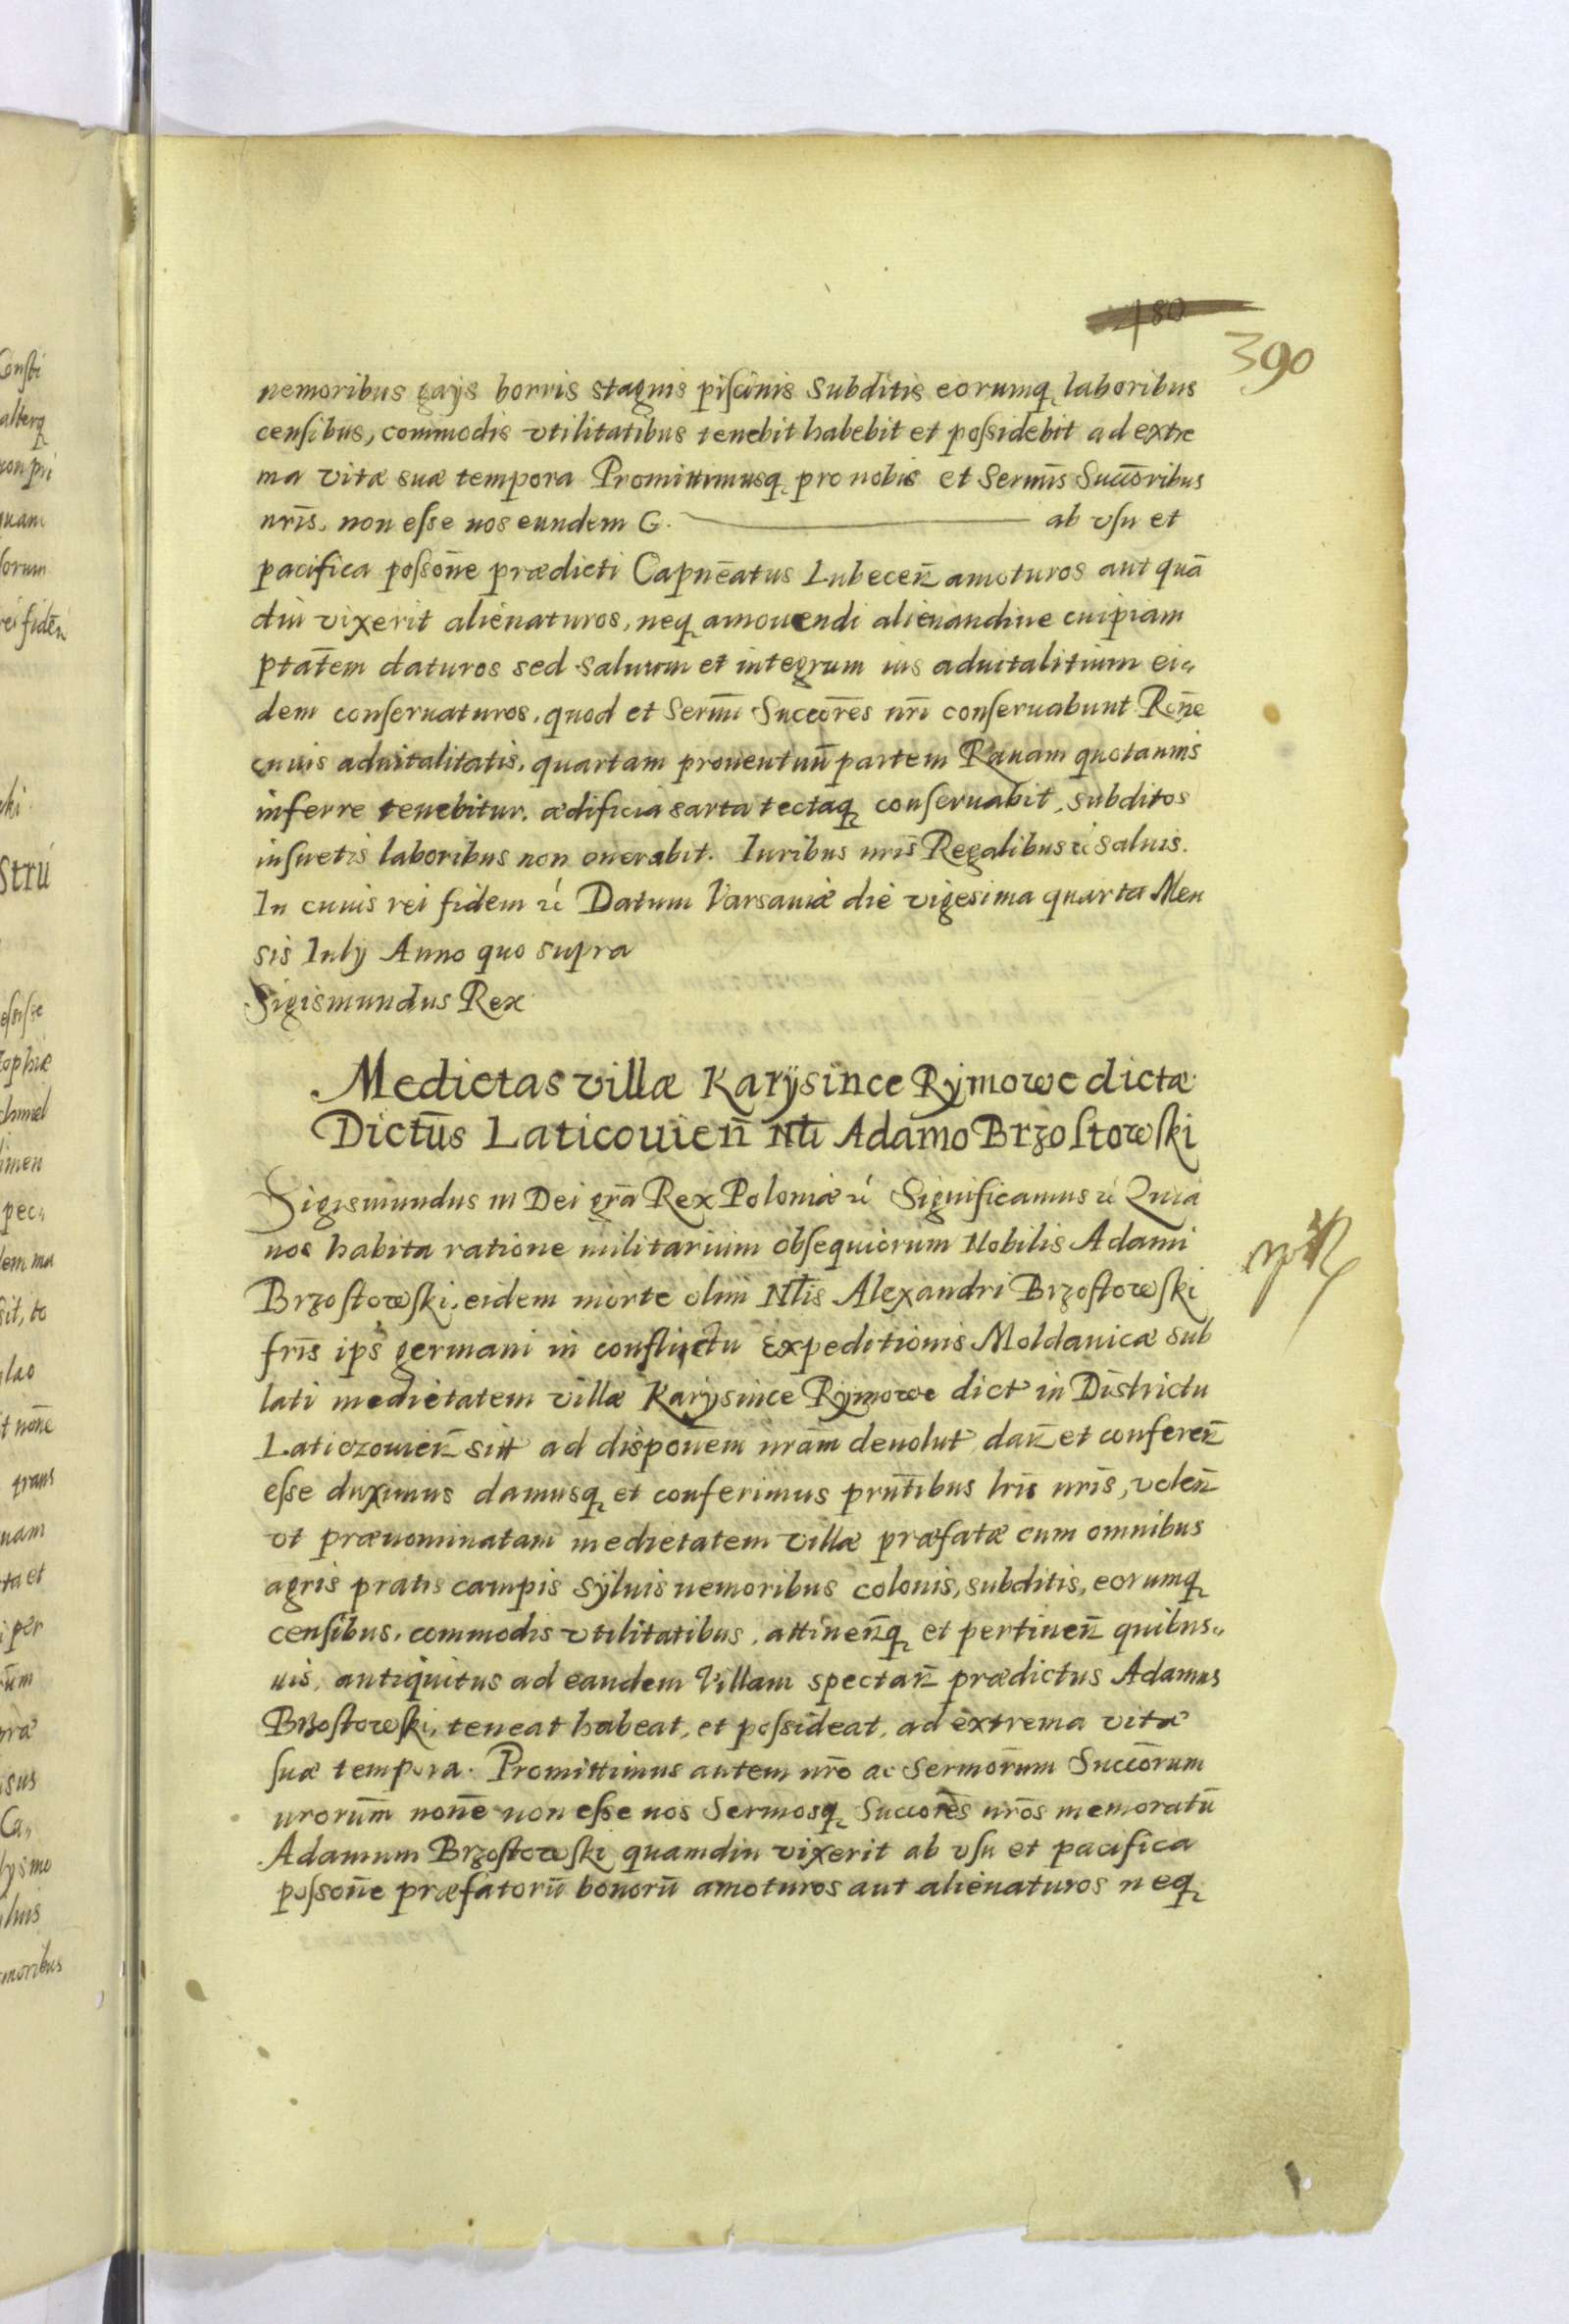 480
390
nemoribus gays borris stagnis piscinis subditis eorumq laboribus
censibus, commodis vtilitatibus tenebit habebit et possidebit ad extre
ma vitæ suæ tempora Promittimusq pro nobis et Sermīs Succōribus
nrīs. non esse nos eundem G. ab vsu et
pacifica possōne prædicti Capnēatus Lubecen̄ amoturos aut quā
diu vixerit alienaturos, neq amouendi alienandiue cuipiam
ptātem daturos sed saluum et integrum ius aduitalitium ei„
dem conseruaturos, quod et Sermī Succōres nrī conseruabunt Rōne
cuius aduitalitatis, quartam prouentuū partem Rauam quotannis
inferre tenebitur. ædificia sarta tectaq conseruabit, subditos
insuetis laboribus non onerabit. Iuribus nrīs Regalibus ꝛc saluis.
In cuius rei fidem ꝛc Datum Varsauiæ die vigesima quarta Men
sis Iuly Anno quo supra
Sigismundus Rex
Medietas villæ Karÿsince Rymowe dictæ
Dictūs Laticouien̄ Nlī Adamo Brzostowski
Sigismundus III Dei grā Rex Poloniæ ꝛc Significamus ꝛc Quia
nos habita ratione militarium obsequiorum Nobilis Adami
Brzostowski, eidem morte olim Nlīs Alexandri Brzostowski
frīs ips̄ germani in conflictu Expeditionis Moldauicæ sub
lati medietatem villæ Karysince Rymowe dict in Districtu
Laticzouien̄ sitt ad dispōnem nrām deuolut dan̄ et conferen̄
esse duximus damusq et conferimus prntībus lrīs nrīs, volen̄
vt prænominatam medietatem villæ præfatæ cum omnibus
agris pratis campis syluis nemoribus colonis, subditis, eorumq
censibus, commodis vtilitatibus, attinen̄q et pertinen̄ quibus„
uis, antiquitus ad eandem Villam spectan̄ prædictus Adamus
Brzostowski, teneat habeat, et possideat, ad extrema vitæ
suæ tempora. Promittimus autem nrō ac Sermōrum Succōrum
nrorūm nōne non esse nos Sermosq Succorēs nrōs memoratū
Adamum Brzostowski quamdiu vixerit ab vsu et pacifica
possōne præfatorū bonorū amoturos aut alienaturos neq